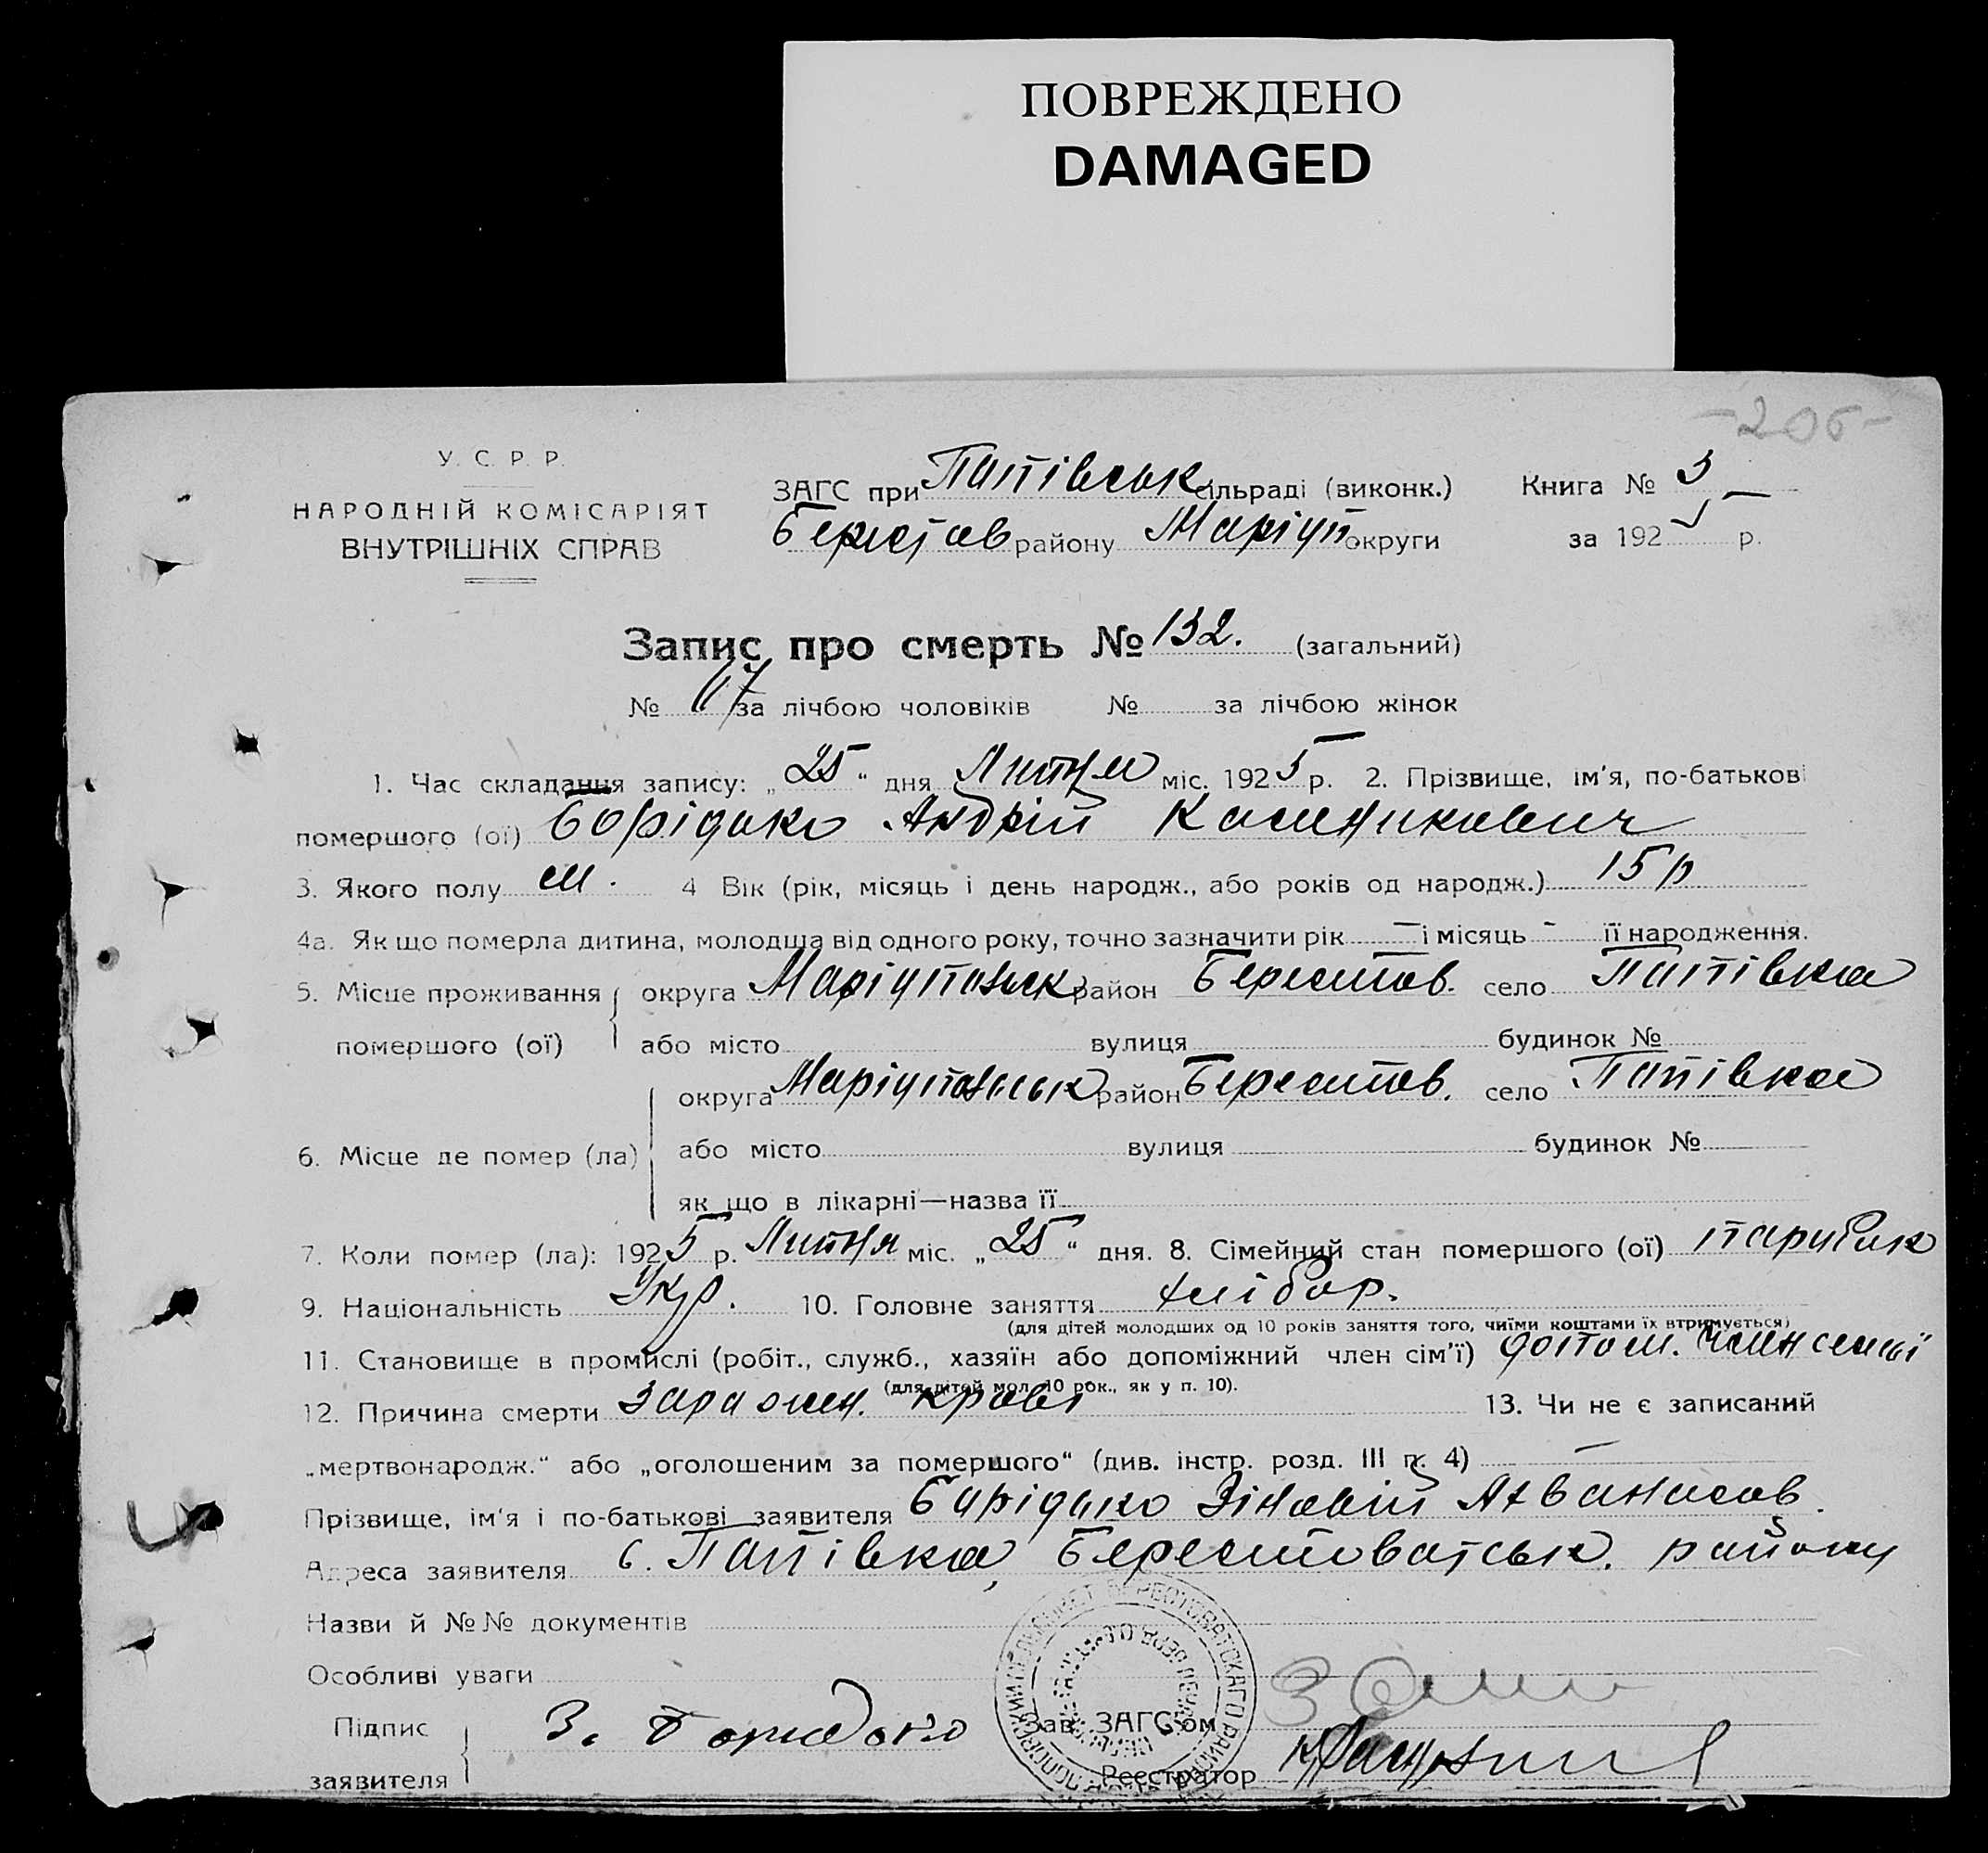 ПОВРЕЖДЕНО
DAMAGED
-206-
У. С. Р. Р.
НАРОДНІЙ КОМІСАРІЯТ
ВНУТРІШНІХ СПРАВ
ЗАГС при Папівськ сільраді (виконк.) Книга № 3
Берестов району Маріуп округи за 1925 р.
Запис про смерть № 132. (загальний)
№ 67 за лічбою чоловіків № за лічбою жінок
1. Час складання запису: „25“ дня Липня міс. 1925 р. 2. Прізвище, ім'я, по-батькові
помершого (ої) Борідько Андрій
3. Якого полу м. 4 Вік (рік, місяць і день народж., або років од народж.) 15 р
4а. Як що померла дитина, молодша від одного року, точно зазначити рік — і місяць - її народження.
5. Місце проживання округа Маріупольск район Берестов. село Папівка
помершого (ої) або місто вулиця будинок №
округа Маріупольськ район Берестов. село Папівка
6. Місце де помер (ла) або місто вулиця будинок №
як що в лікарні—назва її
7. Коли помер (ла): 1925 р. Липня міс. „25“ дня. 8. Сімейний стан помершого (ої) парубок
9. Національність Укр. 10. Головне заняття хлібор.
(для дітей молодших од 10 років заняття того, чиїми коштами їх втримується)
11. Становище в промислі (робіт., служб., хазяїн або допоміжний член сім'ї) допом. член семьї
(для дітей мол. 10 рок., як у п. 10).
12. Причина смерти заражен. крові 13. Чи не є записаний
„мертвонародж.“ або „оголошеним за помершого“ (див. інстр. розд. III п. 4) —
Прізвище, ім'я і по-батькові заявителя Борідько Зіновій Ахванасов.
Адреса заявителя с. Папівка, Берестоватськ. району
Назви й №№ документів
Особливі уваги
Підпис З. Боридько Зав. ЗАГС'ом
заявителя Реєстратор